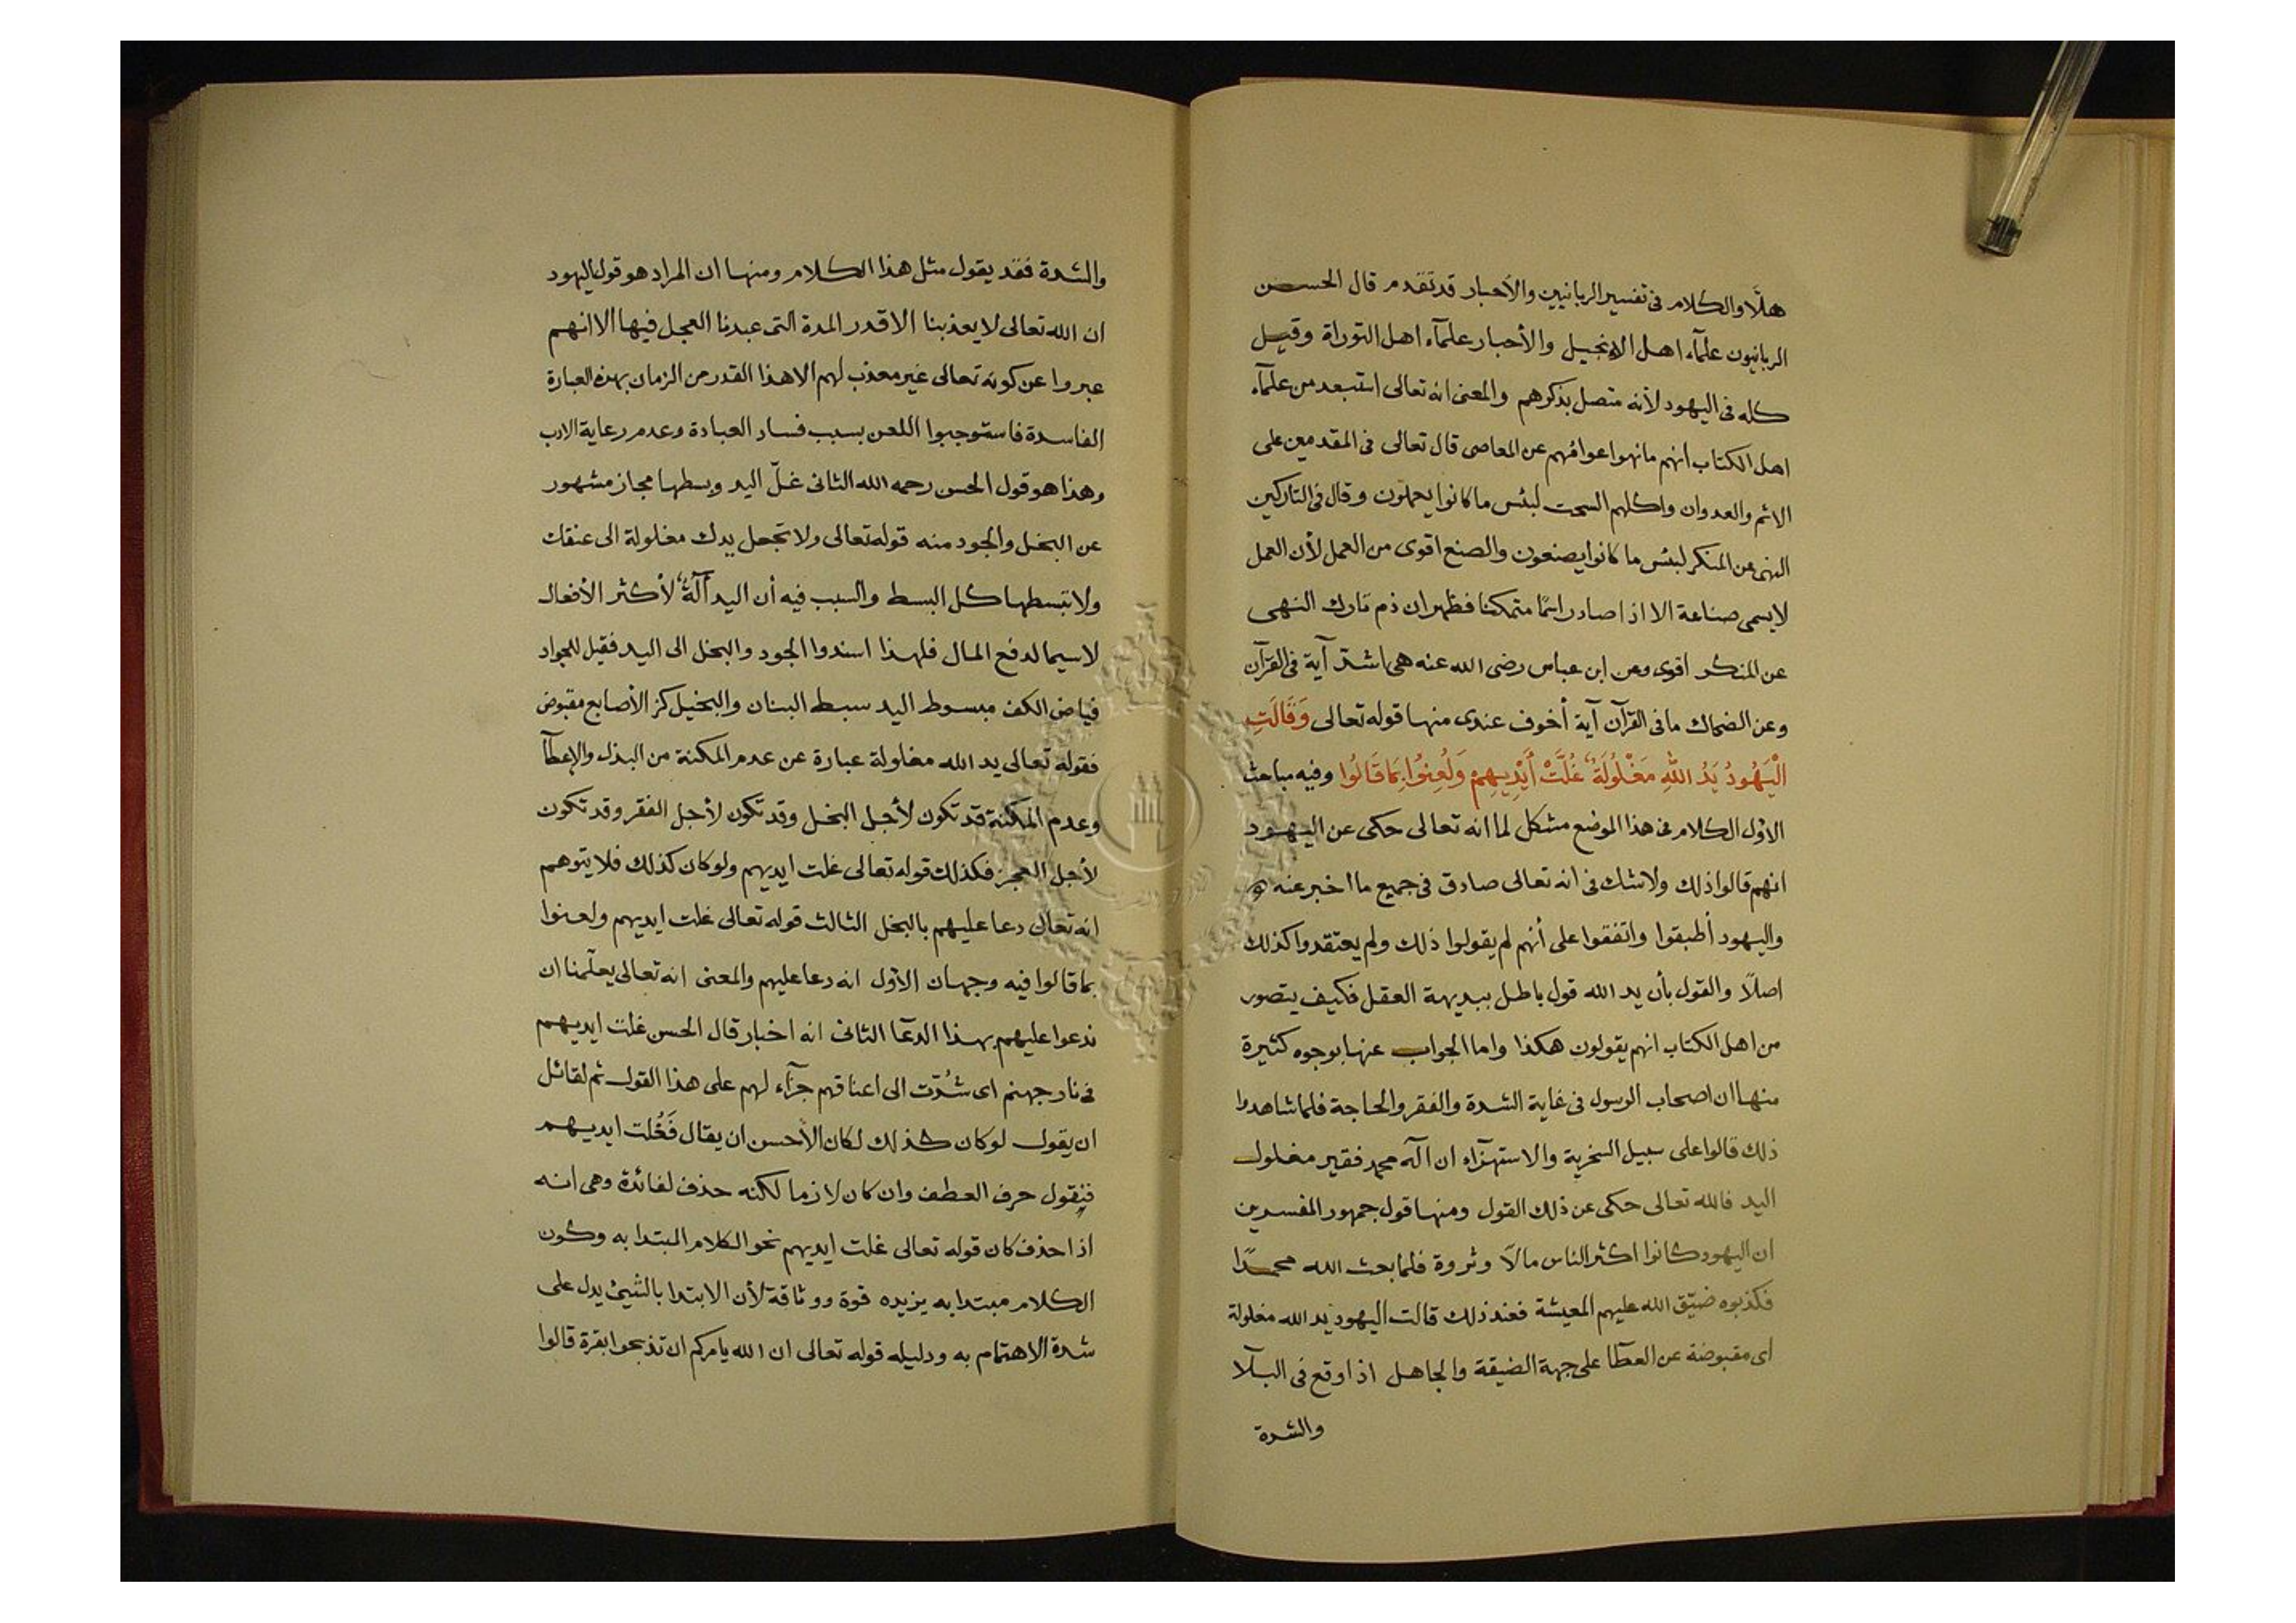 هلّا والكلام فى تفسير الربانيين والأحبار قد تقدم قال الحسن
الربانيون علمآء اهل الانجيل والأحبار علمآء اهل التوراة وقيل
كله فى اليهود لأنه متصل بذكرهم والمعنى انه تعالى استبعد من علمآء
اهل الكتاب انهم ما نهوا عوامهم عن المعاصى قال تعالى فى المقدمين على
الاثم والعدوان واكلهم السحت لبئس ما كانوا يعملون وقال فى التاركين
النهى عن المنكر لبئس ما كانوا يصنعون والصنع اقوى من العمل لأن العمل
لا يسمى صناعة الا اذا صار راسخا متمكنا فظهر ان ذم تارك النهى
عن المنكر اقوى وعن ابن عباس رضى الله عنه هى اشدّ آية فى القرآن
وعن الضحاك ما فى القرآن آية أخوف عندى منها قوله تعالى وَقَالَتِ
الْيَهُودُ يَدُ اللهِ مَغْلُولَةٌ غُلَّتْ أَيْدِيهِمْ وَلُعِنُوا بِمَا قَالُوا وفيه مباحث
الاوّل الكلام فى هذا الموضع مشكل لما انه تعالى حكى عن اليهود
انهم قالوا ذلك ولا شك فى انه تعالى صادق فى جميع ما اخبر عنه و
واليهود أطبقوا واتفقوا على أنهم لم يقولوا ذلك ولم يعتقدوا كذلك
اصلًا والقول بأن يد الله قول باطل ببديهة العقل فكيف يتصور
من اهل الكتاب انهم يقولون هكذا واما الجواب عنها بوجوه كثيرة
منها ان اصحاب الرسول فى غاية الشدة والفقر والحاجة فلما شاهدوا
ذلك قالوا على سبيل السخرية والاستهزآء ان آله محمد فقير مغلول
اليد فالله تعالى حكى عن ذلك القول ومنها قول جمهور المفسرين
ان اليهود كانوا اكثر الناس مالًا وثروة فلما بعث الله محمدًا
فكذبوه ضيّق الله عليهم المعيشة فعند ذلك قالت اليهود يد الله مغلولة
اى مقبوضة عن العطآ على جهة الضيقة والجاهل اذا وقع فى البلآ
والشدة
والشدة فقد يقول مثل هذا الكلام ومنها ان المراد هو قول اليهود
ان الله تعالى لا يعذبنا الا قدر المدة التى عبدنا العجل فيها الا انهم
عبروا عن كونه تعالى غير معذب لهم الا هذا القدر من الزمان بهذه العبارة
الفاسدة فاستوجبوا اللعن بسبب فساد العبادة وعدم رعاية الادب
وهذا هو قول الحسن رحمه الله الثانى غلّ اليد وبسطها مجاز مشهور
عن البخل والجود منه قوله تعالى ولا تجعل يدك مغلولة الى عنقك
ولا تبسطها كل البسط والسبب فيه أن اليد آلةٌ لأكثر الأفعال
لا سيما لدفع المال فلهذا اسندوا الجود والبخل الى اليد فقيل للجواد
فياض الكف مبسوط اليد سبط البنان والبخيل كز الأصابع مقبوض
فقوله تعالى يد الله مغلولة عبارة عن عدم المكنة من البذل والإعطآ
وعدم المكنة قد تكون لأجل البخل وقد تكون لأجل الفقر وقد تكون
لأجل العجز فكذلك قوله تعالى غلت ايديهم ولو كان كذلك فلا يتوهم
انه تعالى دعا عليهم بالبخل الثالث قوله تعالى غلت ايديهم ولعنوا
بما قالوا فيه وجهان الاوّل انه دعا عليهم والمعنى انه تعالى يعلّمنا ان
ندعوا عليهم بهذا الدعآ الثانى انه اخبار قال الحسن غلت ايديهم
فى نار جهنم اى شُدّت الى اعناقهم جزآء لهم على هذا القول ثم لقائل
ان يقول لو كان كذلك لكان الأحسن ان يقال فَغُلت ايديهم
فنقول حرف العطف وان كان لازما لكنه حذف لفائدة وهى انه
اذا حذف كان قوله تعالى غلت ايديهم نحو الكلام المبتدا به وكون
الكلام مبتدا به يزيده قوة ووثاقة لأن الابتدا بالشئ يدل على
شدة الاهتمام به ودليله قوله تعالى ان الله يامركم ان تذبحوا بقرة قالوا